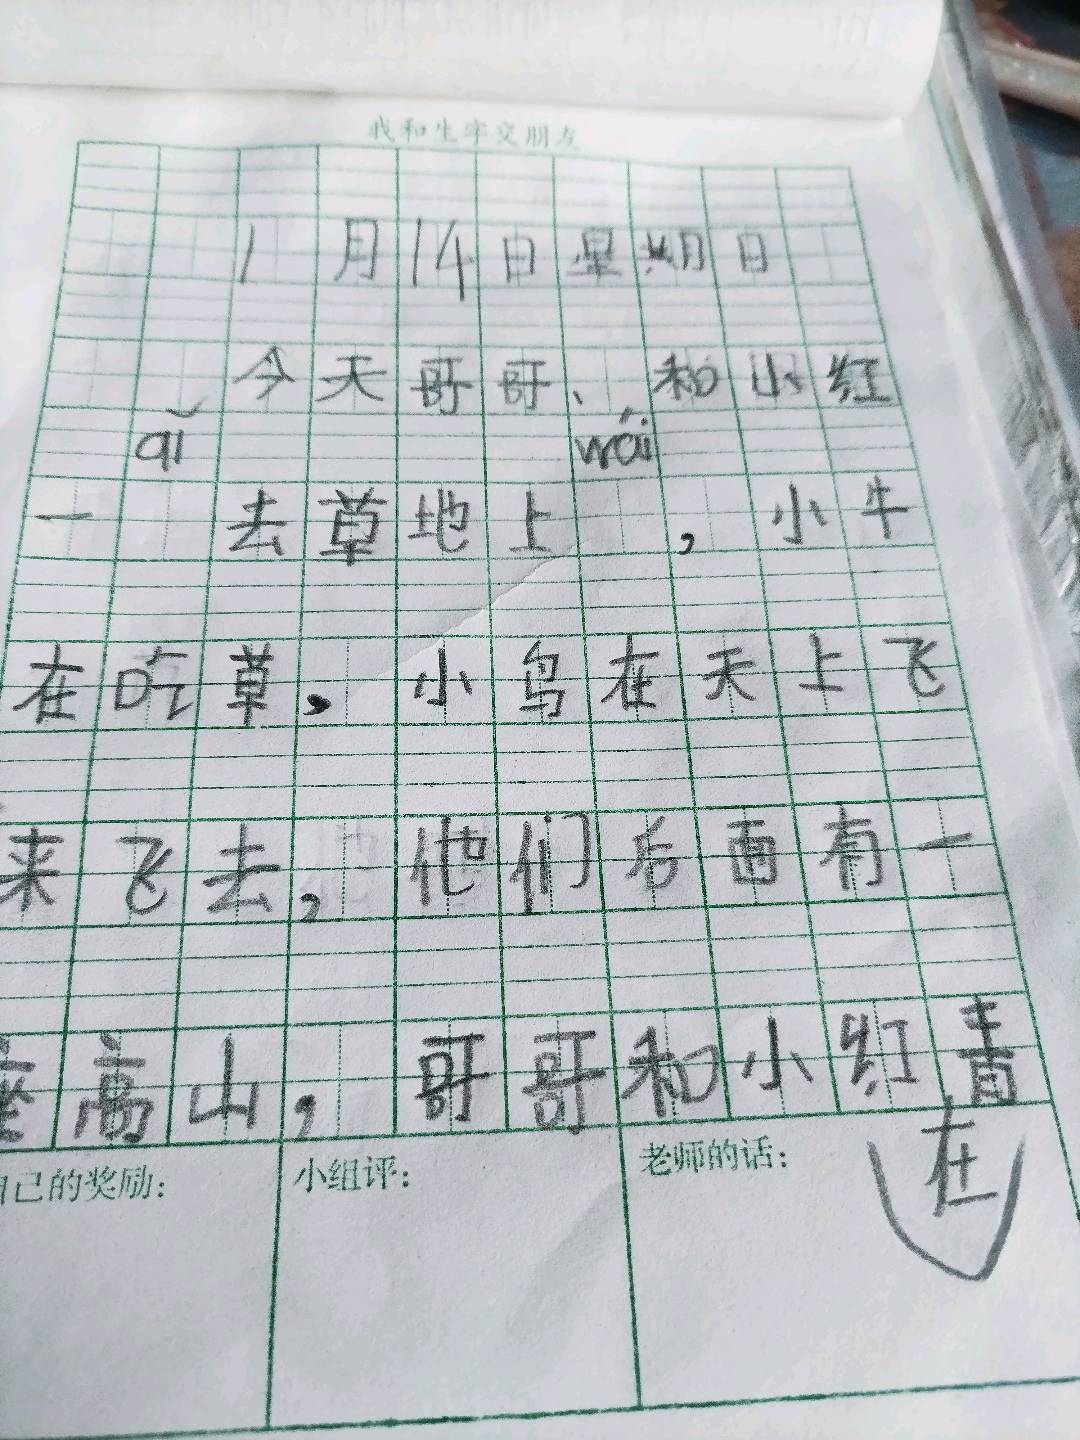 我和生字交朋友
1月14日星期日
今天哥哥、和小红
qǐ wái
一 去草地上 ，小牛
在吃草，小鸟在天上飞
来飞去，他们后面有一
座高山，哥哥和小红青
在
自己的奖励： 小组评： 老师的话：